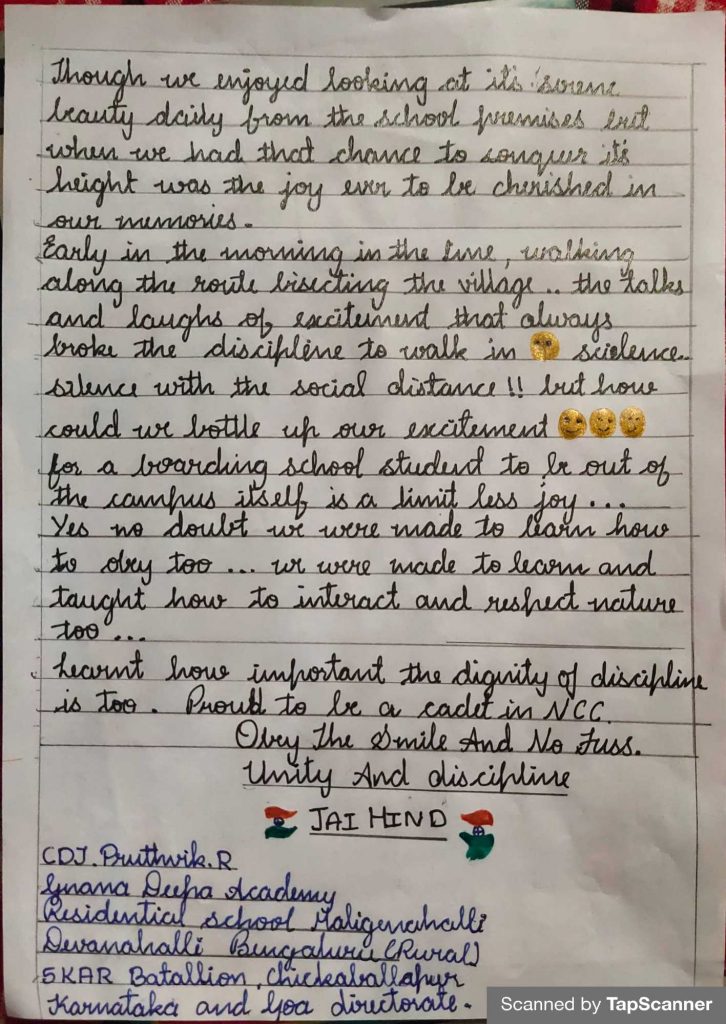 Though we enjoyed looking at it's serene
beauty daily from the school premises but
when we had that chance to conquer it's
height was the joy ever to be cherished in
our memories.
Early in the morning in the line, walking
along the route bisecting the village.. the talks
and laughs of excitement that always
broke the discipline to walk in 🤫 scielence.
silence with the social distance!! but how
could we bottle up our excitement 😊😊😊
for a boarding school student to be out of
the campus itself is a limit less joy ...
Yes no doubt we were made to learn how
to obey too ... we were made to learn and
taught how to interact and respect nature
too ...
Learnt how important the dignity of discipline
is too. Proud to be a cadet in NCC.
Obey The Smile And No Fuss.
Unity And discipline
JAI HIND
CDJ. Pruthvik. R
Gnana Deepa Academy
Residential school Maligenahalli
Devanahalli Bengaluru (Rural)
5KAR Batallion, Chickaballapur
Karnataka and Goa directorate.
Scanned by TapScanner